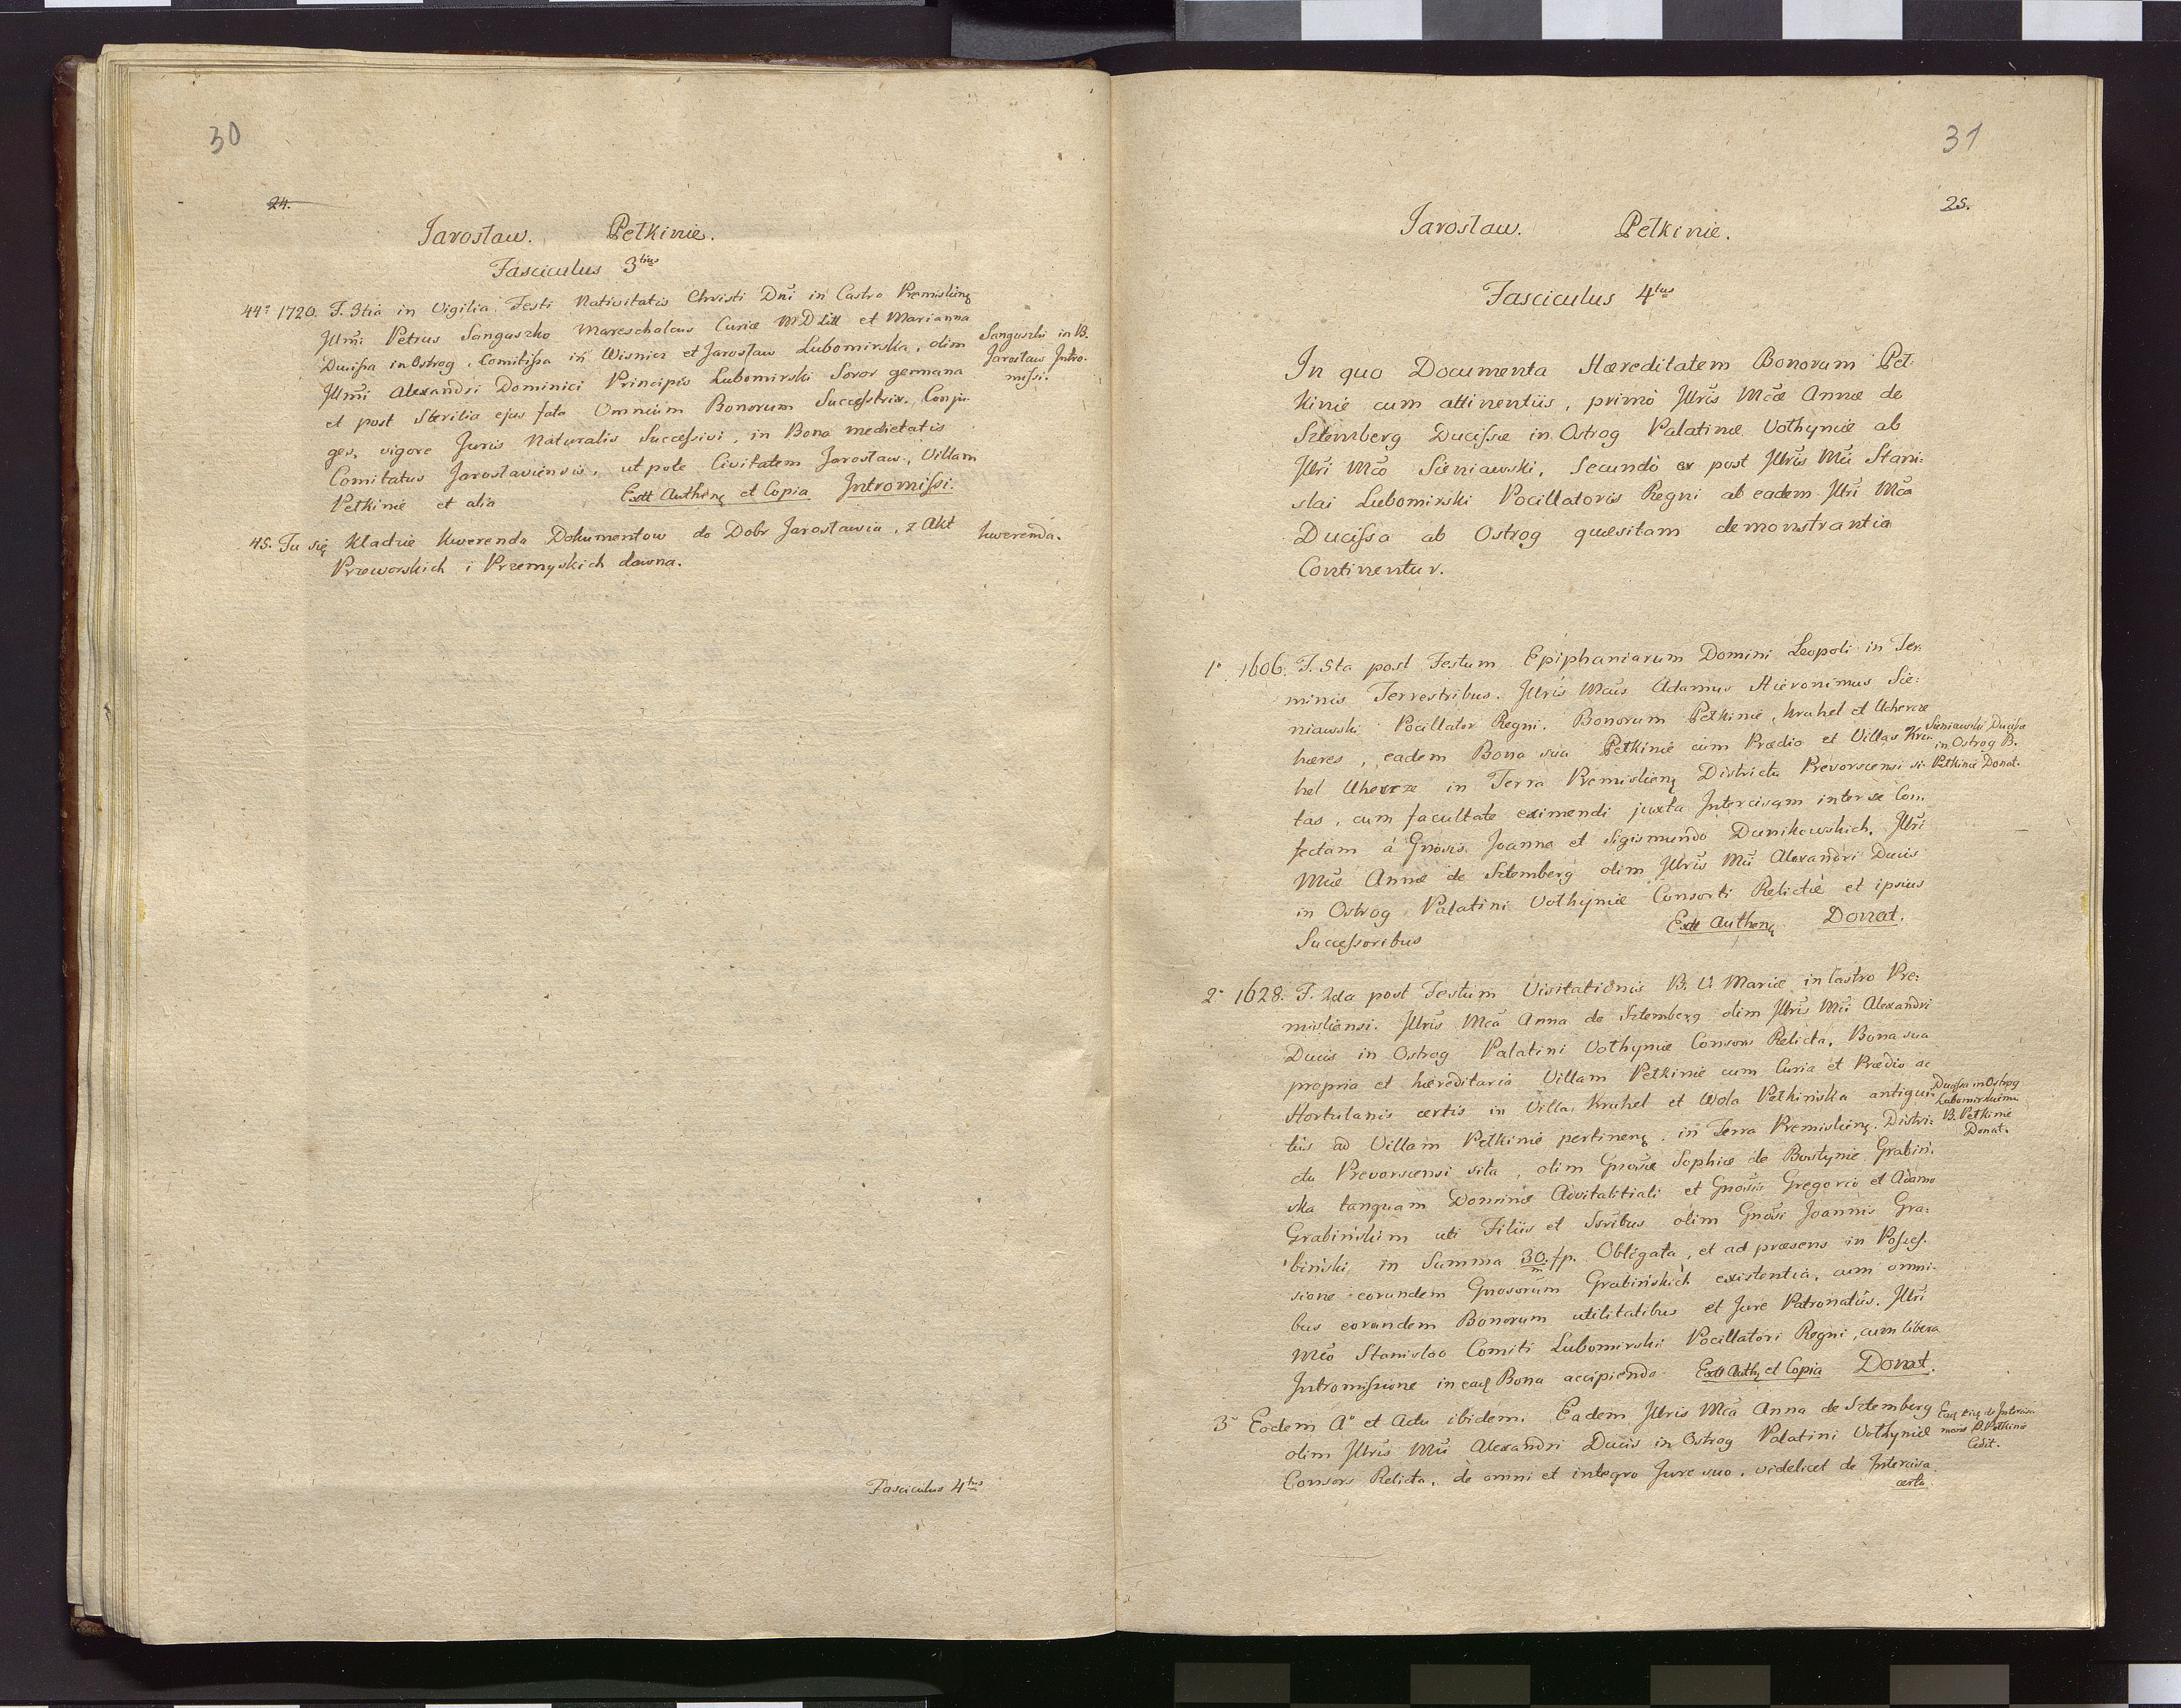 30
24.
Jarosław. Pełkinie.
Fasciculus 3tius
44° 1720. F. 3tia in Vigilia Festi Nativitatis Christi Dni in Castro Premislieng
Illmi Petrus Sanguszko Marescholcus Curiæ MDLitt et Marianna
Ducissa in Ostrog, Comitissa in Wisnicz et Jarosław Lubomirska, olim
Illmi Alexandri Dominici Principis Lubomirski Soror germana
et post Sterilia ejus fata Omnium Bonorum Successtrix. Conju-
ges, vigore Juris Naturalis Successivi, in Bona medietatis
Comitatus Jaroslaviensis, utpote Civitatem Jarosław, Villam
Pełkinie et alia ExttAutheng et Copia Intromissi.
Sanguszki in B.
Jarosław Intro-
missi.
45. Tu się kładzie kwerenda Dokumentow do Dobr Jarosławia, z Akt
Przeworskich i Przemyskich dawna.
kwerenda.
Fasciculus 4tus
31
25.
Jarosław. Pełkinie.
Fasciculus 4tus
In quo Documenta Hæreditatem Bonorum Peł-
kinie cum attinentiis, primò Illris Mcæ Annæ de
Sztemberg Ducissæ in Ostrog Palatinæ Vołhyniæ ab
Illri Mco Sieniawski, Secundò ex post Illris Mci Stani-
slai Lubomirski Pocillatoris Regni ab eadem Illri Mca
Ducissa ab Ostrog quæsitam demonstrantia
Continentur.
1° 1606. F. 5ta post Festum Epiphaniarum Domini Leopoli in Ter-
minis Terrestribus. Illris Mcus Adamus Hieronimus Sie-
niawski Pocillator Regni. Bonorum Pełkinie, Kruhel et Uherce
hæres, eadem Bona sua Pełkinie cum Prædio et Villas Kru-
hel Uherce in Terra Premislieng Districtu Prevorscensi si-
tas, cum facultate eximendi juxta Intercisam inter se Con-
fectam à Gnosis Joanne et Sigismundo Dunikowskich, Illri
Mcæ Annæ de Sztemberg olim Illris Mci Alexandri Ducis
in Ostrog Palatini Vołhyniæ Consorti Relictæ et ipsius
Successoribus Extt Autheng Donat.
Sieniawski Ducissæ
in Ostrog B.
Pełkinie Donat.
2° 1628. F. 2da post Festum Visitationis B. V. Mariæ in Castro Pre-
misliensi. Illris Mca Anna de Sztemberg olim Illris Mci Alexandri
Ducis in Ostrog Palatini Vołhyniæ Consors Relicta, Bona sua
propria et hæreditaria Villam Pełkinie cum Curia et Prædio ac
Hortulanis certis in Villa Kruhel et Wola Pełkińska antiqui-
tus ad Villam Pełkinie pertineng. in Terra Premislieng. Distri-
ctu Prevorscensi sita, olim Gnosæ Sophiæ de Burtynie Grabiń-
ska tanquam Dominæ Advitalitiali et Gnosis Gregorio et Adamo
Grabińskim uti Filiis et Ssribus olim Gnosi Joannis Gra-
biński in Summa 30/m fp. Obligata, et ad præsens in Posses-
sione eorundem Gnosorum Grabińskich existentia, cum omni-
bus eorundem Bonorum utilitatibus et Jure Patronatus. Illri
Mco Stanislao Comiti Lubomirski Pocillatori Regni, cum libera
Intromissione in eaq Bona accipienda Extt Authg et Copia Donat.
Ducissa in Ostrog
Lubomirskiemu
B. Pełkinie
Donat.
3° Eodem A° et Actu ibidem. Eadem Illris Mca Anna de Sztemberg
olim Illris Mci Alexandri Ducis in Ostrog Palatini Vołhyniæ
Consors Relicta, de omni et integro Jure suo, videlicet de Intercisa
certa
de Intercisa
B. Pełkinie
Cedit.